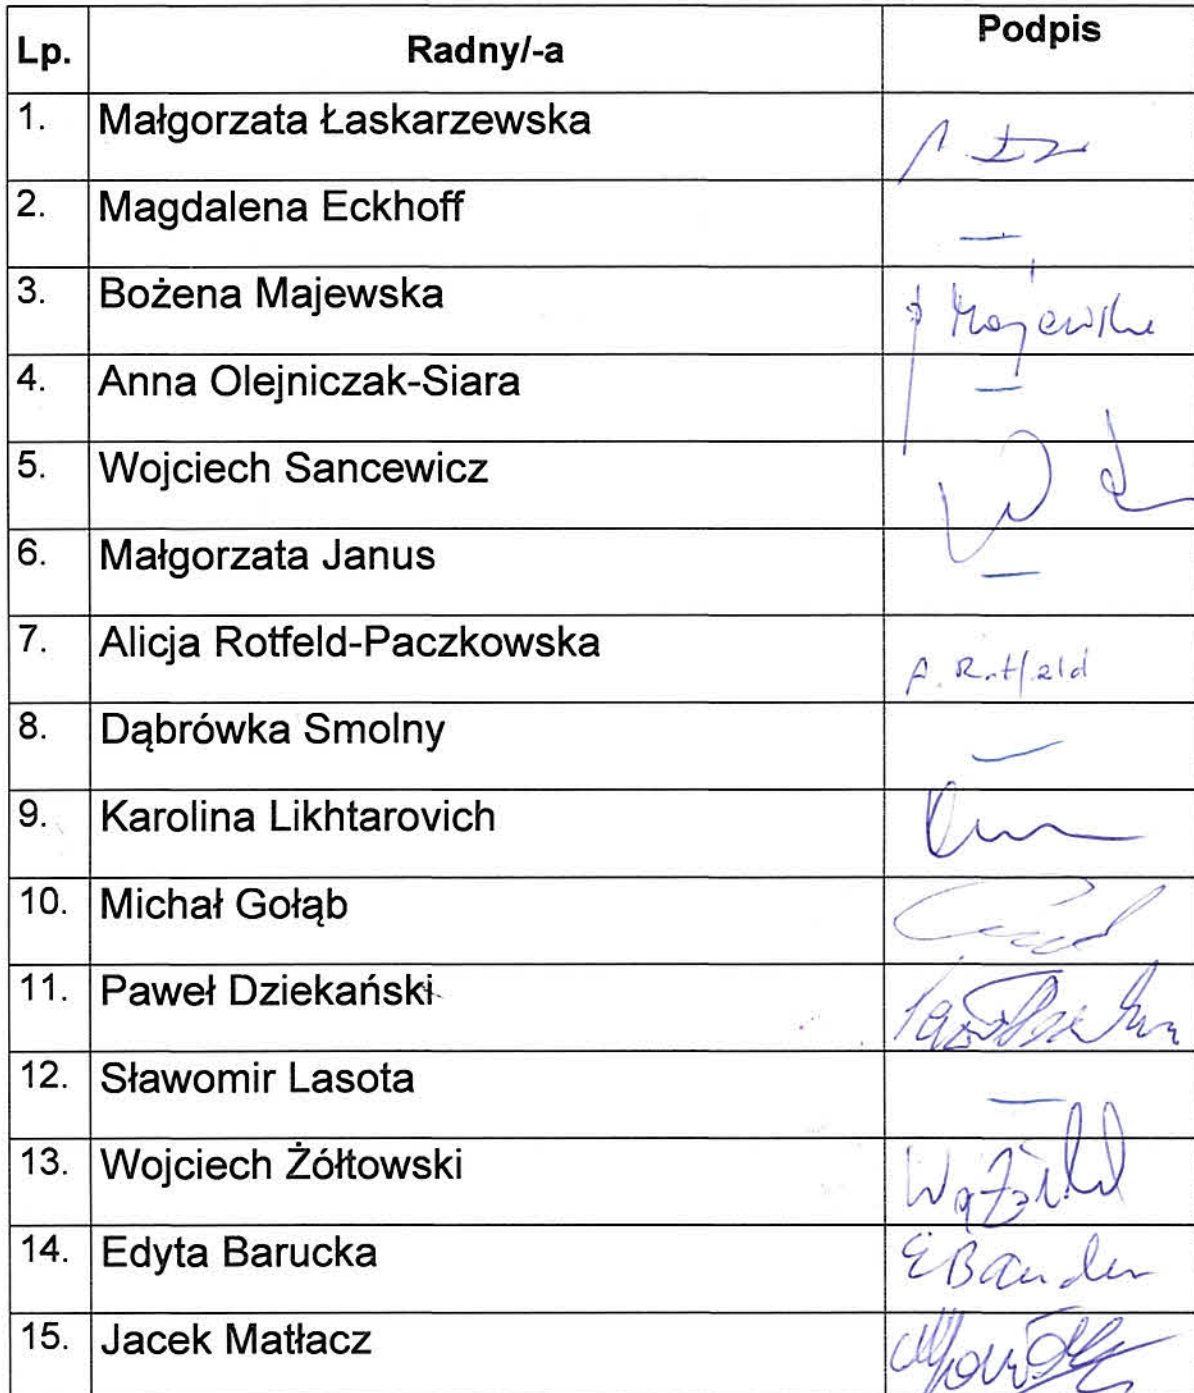 Lp. Radny/-a Podpis
1. Małgorzata Łaskarzewska
2. Magdalena Eckhoff —
3. Bożena Majewska Majewska
4. Anna Olejniczak-Siara —
5. Wojciech Sancewicz
6. Małgorzata Janus —
7. Alicja Rotfeld-Paczkowska A. Rotfeld
8. Dąbrówka Smolny —
9. Karolina Likhtarovich
10. Michał Gołąb
11. Paweł Dziekański
12. Sławomir Lasota —
13. Wojciech Żółtowski
14. Edyta Barucka
15. Jacek Matłacz